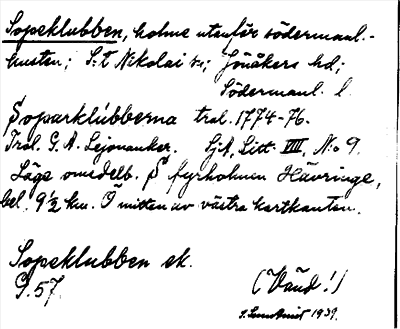 Sopeklubben, holme utanför södermanl.-
kusten; S:t Nikolai sn; Jönåkers hd;
Södermanl. l.
Soparklubberna tral. 1774-76.
Tral. G. A. Lejonanker. SjA, Litt. VIII, No 9.
Läge omedelb. S fyrholmen Hävringe,
bel. 9½ km. Ö mitten av västra kartkanten.
Sopeklubben ek.
S. 57.
(Vänd!)
1939.